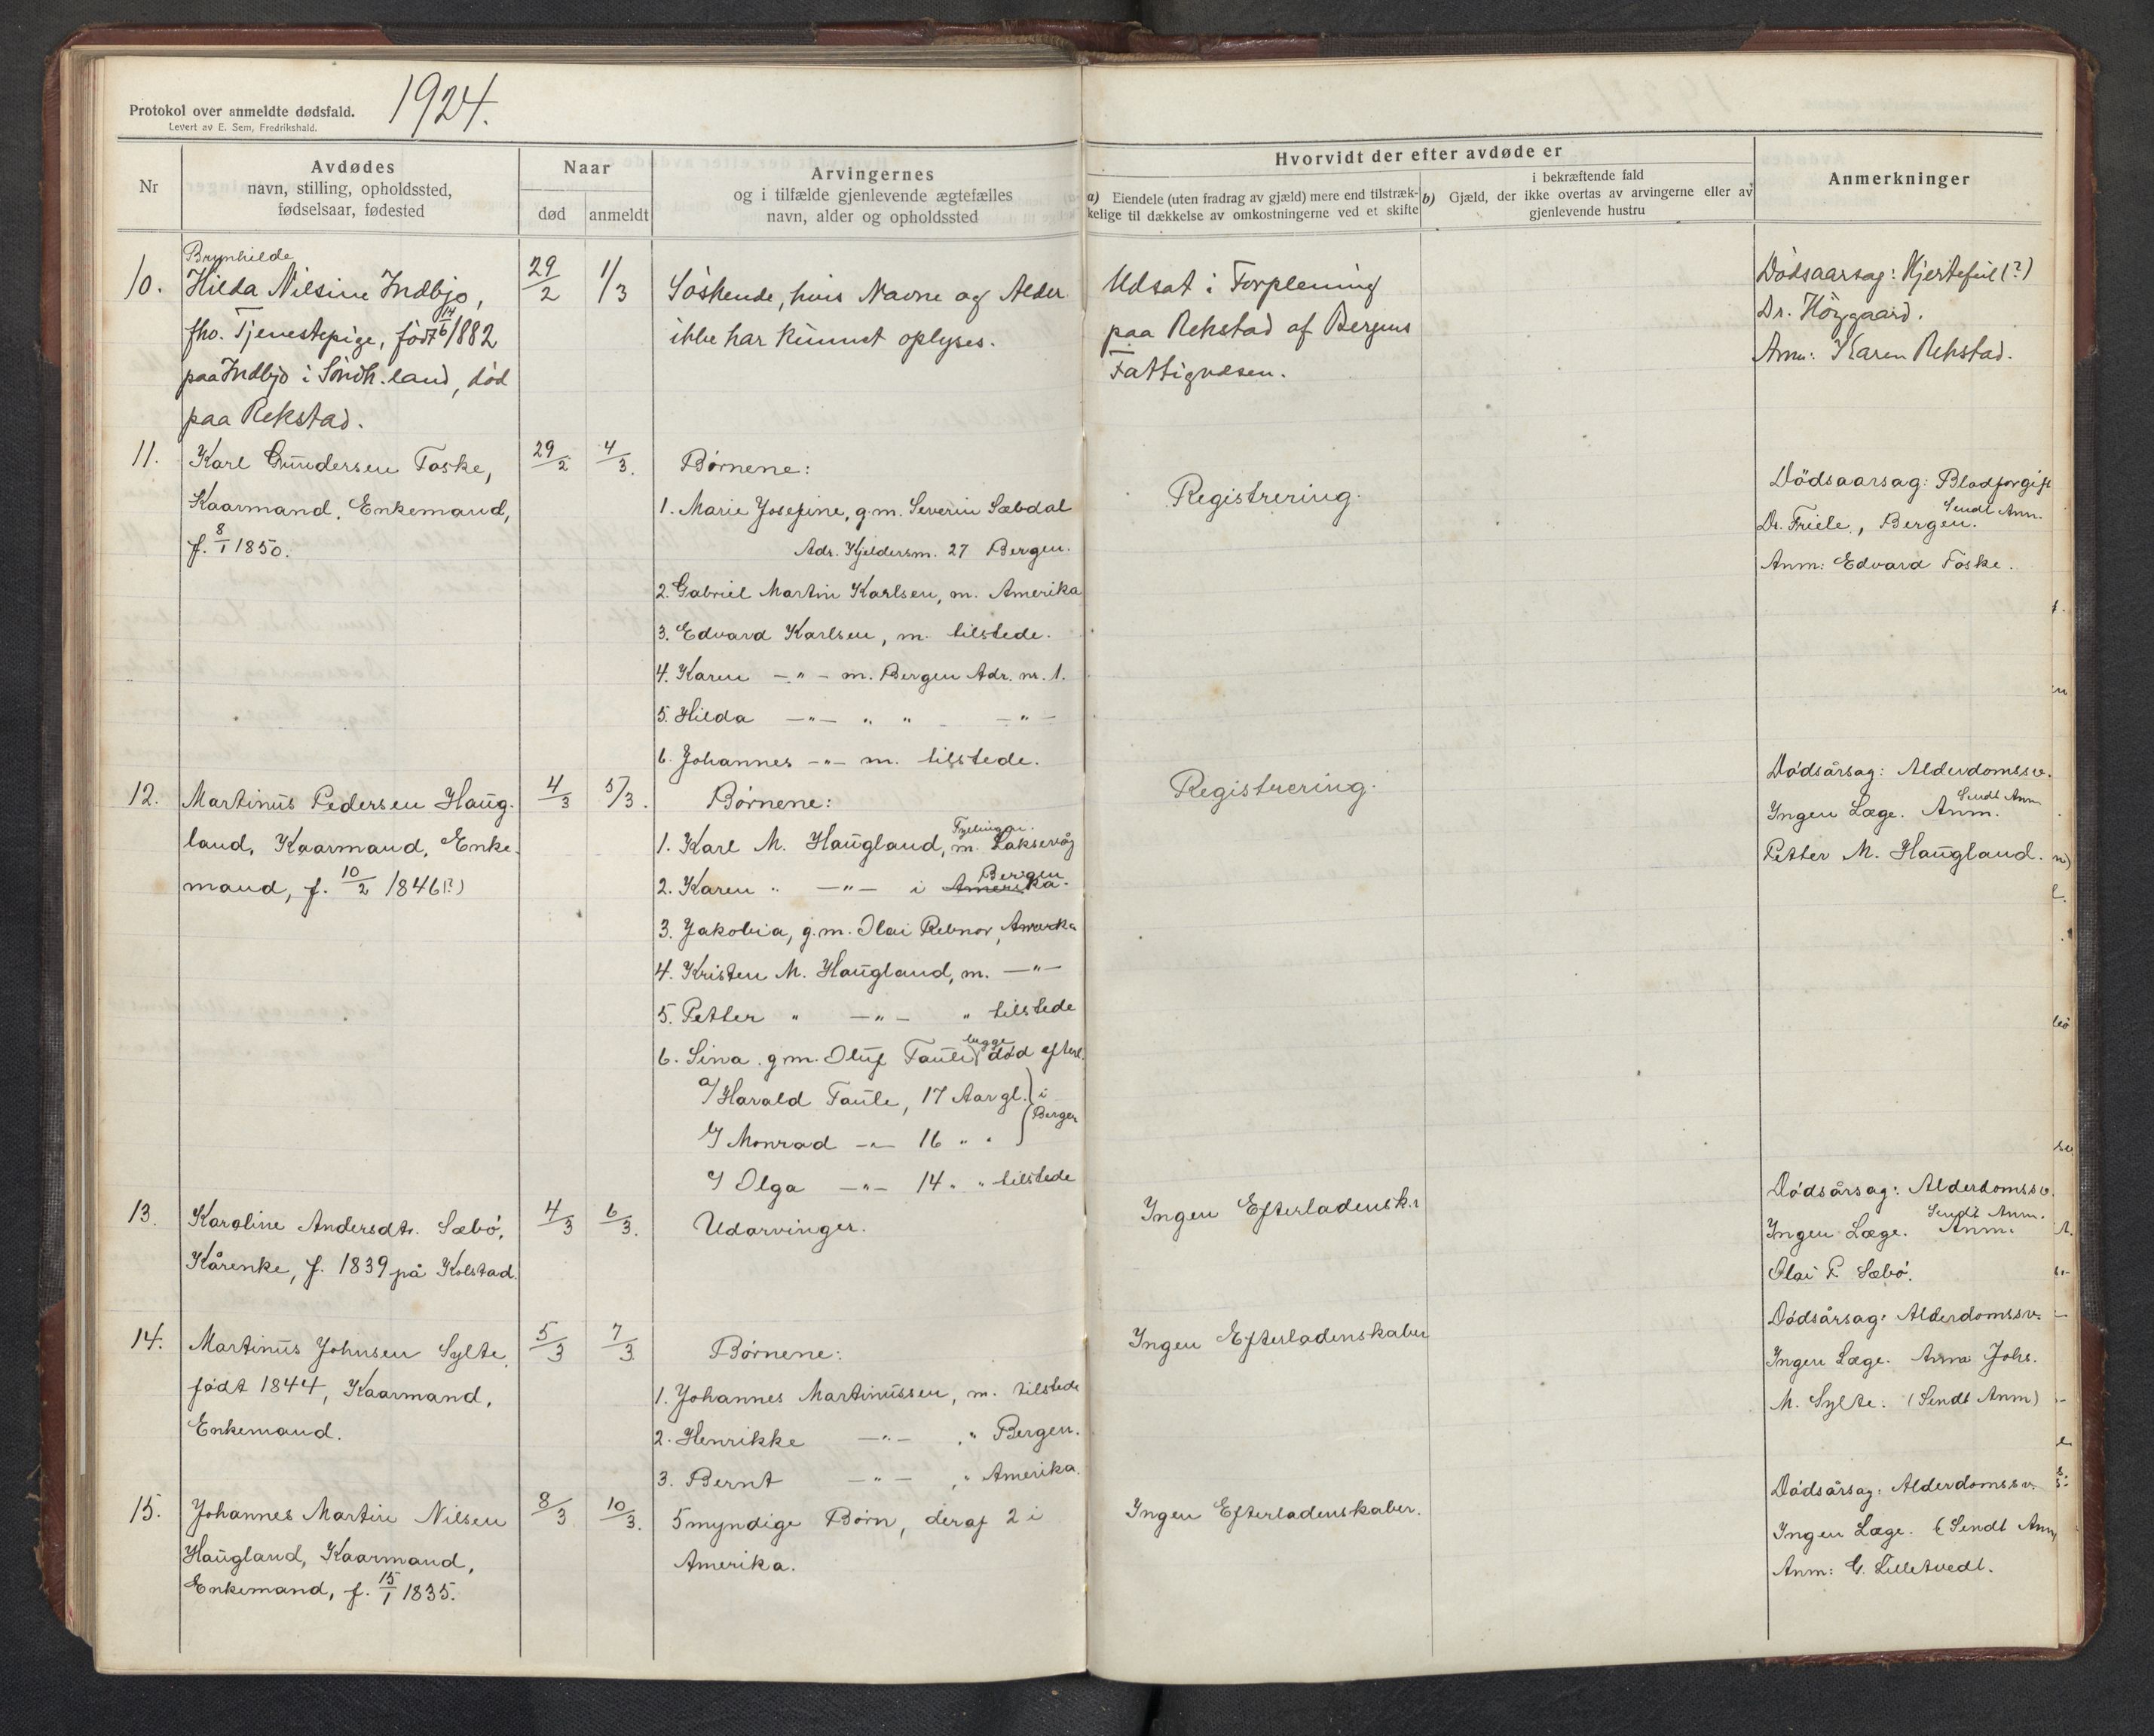 Protokol over anmeldte dødsfald.
Levert av E. Sem, Fredrikshald.
1924.
Nr
Avdødes
navn, stilling, opholdssted,
fødselsaar, fødested
Naar
død
anmeldt
Arvingernes
og i tilfælde gjenlevende ægtefælles
navn, alder og opholdssted
Hvorvidt der efter avdøde er
a) Eiendele (uten fradrag av gjæld) mere end tilstræk-
kelige til dækkelse av omkostningerne ved et skifte
i bekræftende fald
b) Gjæld, der ikke overtas av arvingerne eller av
gjenlevende hustru
Anmerkninger
10.
Brynhilde
Hilda Nilsine Indbjo,
fho. Tjenestepige, født 14/6 1882
paa Indbjo i Söndh.land, död
paa Rekstad.
29/2
1/3
Söskende, hvis Navne og Alder
ikke har kunnet oplyses.
Udsat i Forpleining
paa Rekstad af Bergens
Fattigvæsen.
Dødsaarsag: Hjertefeil (?)
Dr. Höygaard.
Anm: Karen Rekstad.
11.
Karl Gundersen Foske,
Kaarmand, Enkemand,
f. 8/1 1850.
29/2
4/3.
Børnene:
1. Marie Josefine, g.m. Severin Sæbdal
Adr. Kjeldersm. 27 Bergen.
2. Gabriel Martin Karlsen, m. Amerika
3. Edvard Karlsen, m. tilstede.
4. Karen -"- m. Bergen Adr. nr. 1.
5. Hilda -"- " " -"-
6. Johannes -"- m. tilstede.
Registrering.
Dödsaarsag: Blodforgift
Sendt Anm.
Dr. Friele, Bergen.
Anm: Edvard Foske.
12.
Martinus Pedersen Haug-
land, Kaarmand, Enke-
mand, f. 10/2 1846(?)
4/3
5/3.
Børnene:
1. Karl M. Haugland, m. Laksevåg
Bergen
2. Karen " -"- i Amerika.
3. Jakobia, g.m. Olai Rebnor, Amerika
4. Kristen M. Haugland, m. -"-
5. Petter " -"- " tilstede
begge
6. Sina g.m. Oluf Faule død efterl.
a/ Harald Faule, 17 Aar gl. } i
b/ Monrad -"- 16 " " } Bergen
c/ Olga -"- 14 " " tilstede
Registrering.
Dödsårsag: Alderdomssv.
Sendt Anm
Ingen Læge. Anm.
Petter M. Haugland.
13.
Karoline Andersdtr. Sæbö,
Kårenke, f. 1839 på Kolstad.
4/3
6/3.
Udarvinger.
Ingen Efterladensk.r
Dödsårsag: Alderdomssv.
Sendt Anm.
Ingen Læge. Anm.
Olai P. Sæbö.
14.
Martinus Johnsen Sylte,
født 1844, Kaarmand,
Enkemand.
5/3
7/3
Børnene:
1. Johannes Martinussen, m. tilstede
2. Henrikke -"- " Bergen.
3. Bernt -"- " Amerika.
Ingen Efterladenskaber
Dödsårsag: Alderdomssv.
Ingen Læge. Anm Johs.
M. Sylte. (Sendt Anm)
15.
Johannes Martin Nilsen
Haugland, Kaarmand,
Enkemand, f. 15/1 1835.
8/3
10/3.
5 myndige Børn, deraf 2 i
Amerika.
Ingen Efterladenskaber.
Dödsårsag: Alderdomssv.
Ingen Læge. (Sendt Anm)
Anm: G. Lilletvedt.